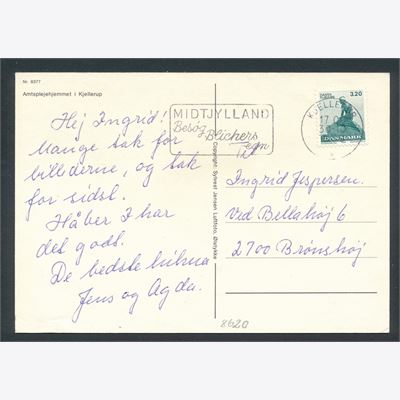 Nr. 8377
Amtsplejehjemmet i Kjellerup
Hej Ingrid!
Mange tak for
billederne, og tak
for sidst.
Håber I har
det godt.
De bedste hilsner
Jens og Agda.
MIDTJYLLAND
Besøg Blichers
egn
KJELLERUP
17
3.20
DANMARK
Copyright: Sylvest Jensen Luftfoto, Øslykke
Til
Ingrid Jespersen.
Ved Bellahøj 6
2700 Brønshøj
8620